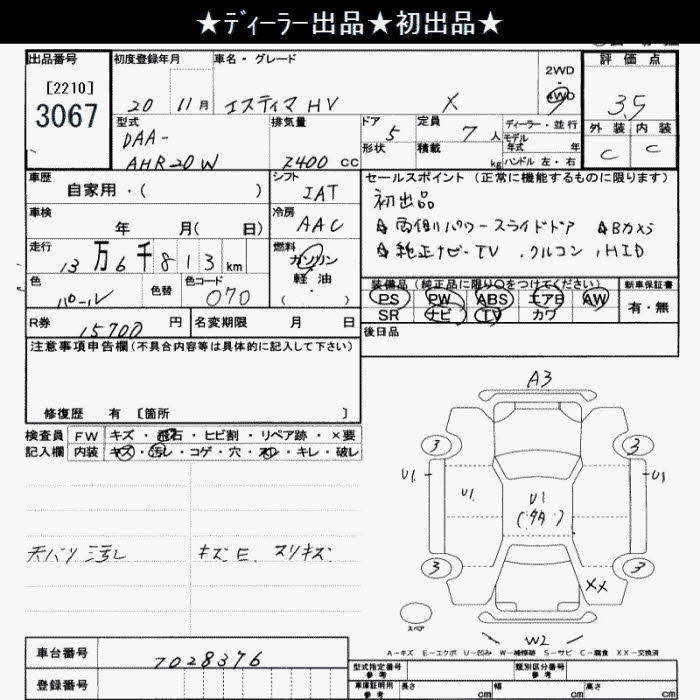 ★ディーラー出品★初出品★
出品番号 初度登録年月 車名・グレード 2WD 4WD 評価点
[2210]
3067
20 11月 エスティマ HV X 3.5
型式 排気量 ドア 5 定員 7人 ディーラー・並行 外装 内装
DAA-
AHR20W 2400 cc 形状 積載 kg モデル年式 年 C C
ハンドル 左・右
車歴 シフト セールスポイント (正常に機能するものに限ります)
自家用・( ) IAT 初出品
車検 冷房
年 月( 日) AAC ☆両側パワースライドドア ☆Bカメラ
走行 燃料 ☆純正ナビ-TV、クルコン、HID
13万6千813km ガソリン
軽油
・( )
色 色替 色コード 装備品 (純正品に限り○をつけてください) 新車保証書
パール 070 PS PW ABS エアB AW 有・無
SR ナビ TV カワ
R券 15700円 名変期限 月 日 後日品
注意事項申告欄(不具合内容等は具体的に記入して下さい)
修復歴 有 [箇所 ]
検査員 FW キズ・飛石・ヒビ割・リペア跡・×要
記入欄 内装 キズ・汚レ・コゲ・穴・スレ・キレ・破レ
天バリ 汚し キズE、スリキズ
A3
3 3
U1 U1 U1 U1
(タタ)
3 3
XX
スペア
W2
A-キズ E-エクボ U-凹み W-補修跡 S-サビ C-腐食 XX-交換済
車台番号 7028376
登録番号
型式指定番号 参考 類別区分番号 参考
車庫証明用 参考 長さ cm 幅 cm 高さ cm